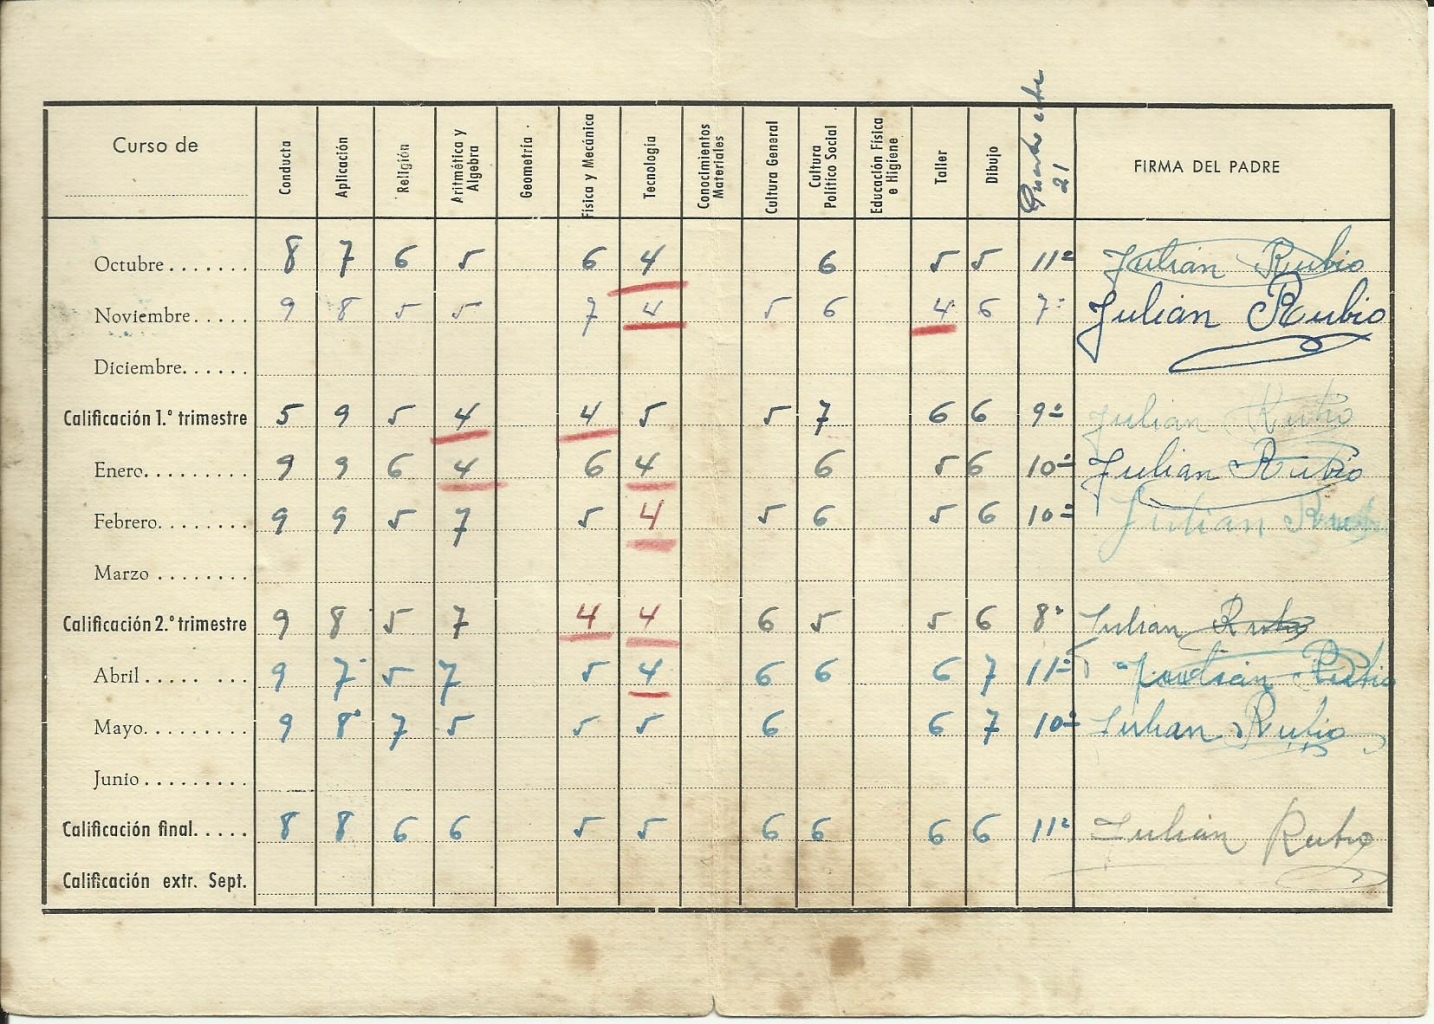 Curso de Conducta Aplicación Religión Aritmética y Algebra Geometría Física y Mecánica Tecnología Conocimientos Materiales Cultura General Cultura Político Social Educación Física e Higiene Taller Dibujo 21 FIRMA DEL PADRE
Octubre 8 7 6 5 6 4 6 5 5 11ª Julián Rubio
Noviembre 9 8 5 5 7 4 5 6 4 6 7ª Julián Rubio
Diciembre
Calificación 1.º trimestre 5 9 5 4 4 5 5 7 6 6 9ª Julian Rubio
Enero 9 9 6 4 6 4 6 5 6 10ª Julian Rubio
Febrero 9 9 5 7 5 4 5 6 5 6 10ª Julian Rubio
Marzo
Calificación 2.º trimestre 9 8 5 7 4 4 6 5 5 6 8ª Julian Rubio
Abril 9 7 5 7 5 4 6 6 6 7 11ª Julián Rubio
Mayo 9 8 7 5 5 5 6 6 7 10ª Julian Rubio
Junio
Calificación final 8 8 6 6 5 5 6 6 6 6 11ª Julián Rubio
Calificación extr. Sept.